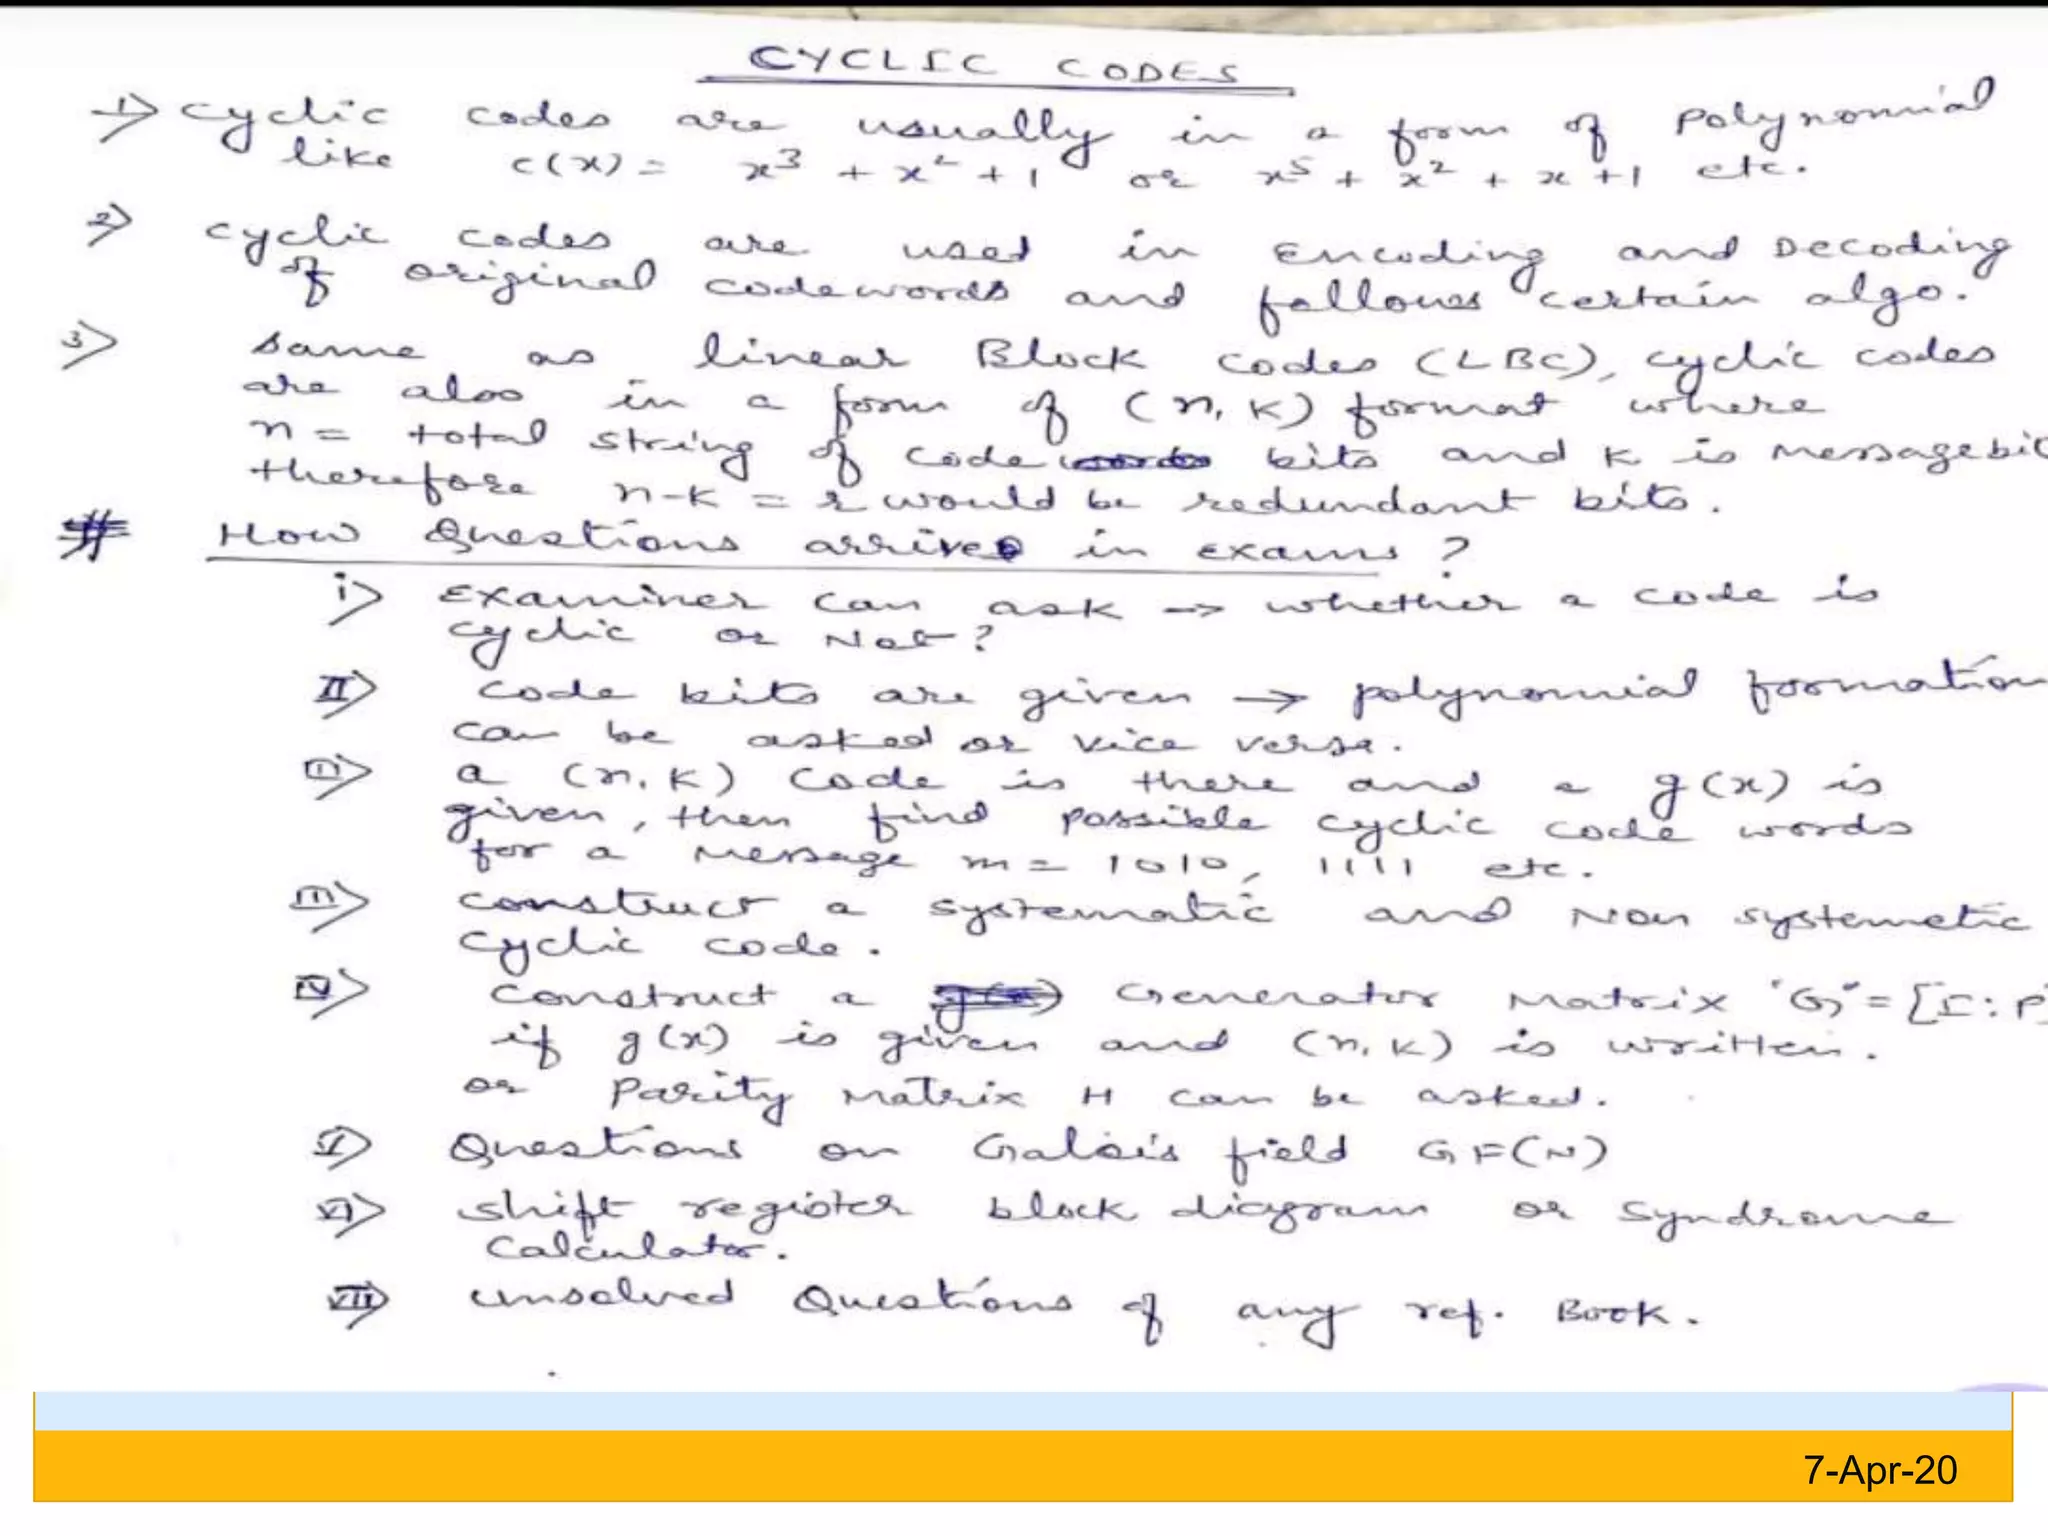 CYCLIC CODES
1) Cyclic codes are usually in a form of Polynomial
like c(x) = x³ + x² + 1 or x⁵ + x² + x + 1 etc.
2) Cyclic codes are used in Encoding and Decoding
of original codewords and follows certain algo.
3) Same as linear Block codes (LBC), cyclic codes
are also in a form of (n, K) format where
n = total string of code bits and K is messagebit
therefore n-K = r would be redundant bits.
# How Questions arrives in exams ?
i) Examiner can ask → whether a code is
cyclic or Not ?
II) code bits are given → polynomial formation
can be asked or vice versa.
II) a (n, K) code is there and a g(x) is
given, then find possible cyclic code words
for a message m = 1010, 1111 etc.
III) construct a systematic and Non systemetic
cyclic code.
IV) construct a Generator Matrix "G" = [I : P]
if g(x) is given and (n, K) is written.
or Parity Matrix H can be asked.
V) Questions on Galois field GF(N)
VI) shift register block diagram or Syndrome
Calculator.
VII) unsolved Questions of any ref. Book.
7-Apr-20